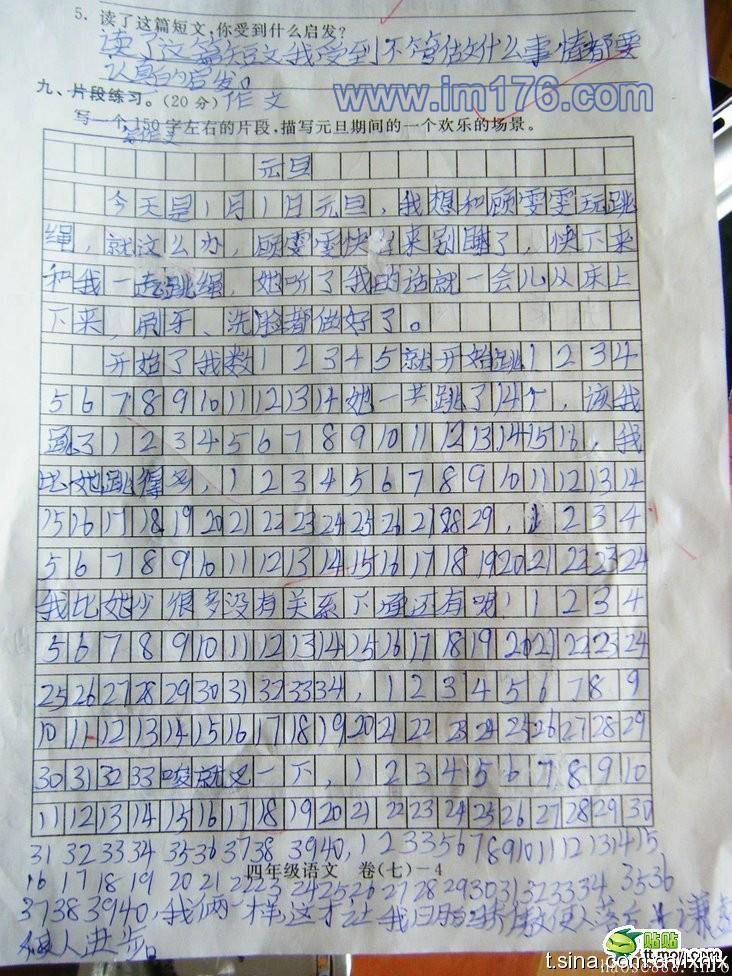 5. 读了这篇短文，你受到什么启发？
读了这篇短文我受到不管做什么事情都要
认真的启发。
www.im176.com
九、片段练习。(20分) 作文
写一个150字左右的片段，描写元旦期间的一个欢乐的场景。
元旦
今天是1月1日元旦，我想和顾雯雯玩跳
绳，就这么办，顾雯雯快起来别睡了，快下来
和我一起跳绳，她听了我的话就一会儿从床上
下来，刷牙、洗脸都做好了。
开始了我数12345就开始跳1234
567891011121314她一共跳了14个，该我
跳了12345678910111213141516，我
比她跳得多，1234567891011121314
151617181920212223242526272829，1234
56789101112131415161718192021222324
我比她少很多没有关系下面还有呢！1234
56789101112131415161718192021222324
25262728293031323334，123456789
1011121314151617181920212223242526272829
30313233唉就没一下，12345678910
1112131415161718192021222324252627282930
31323334353637383940，123356789101112131415
四年级语文 卷(七)—4
161718192021222324252627282930313233343536
37383940，我俩一样，这才让我明白骄傲使人落后谦虚
使人进步。
贴贴
t.sina.com.cn/ixnx